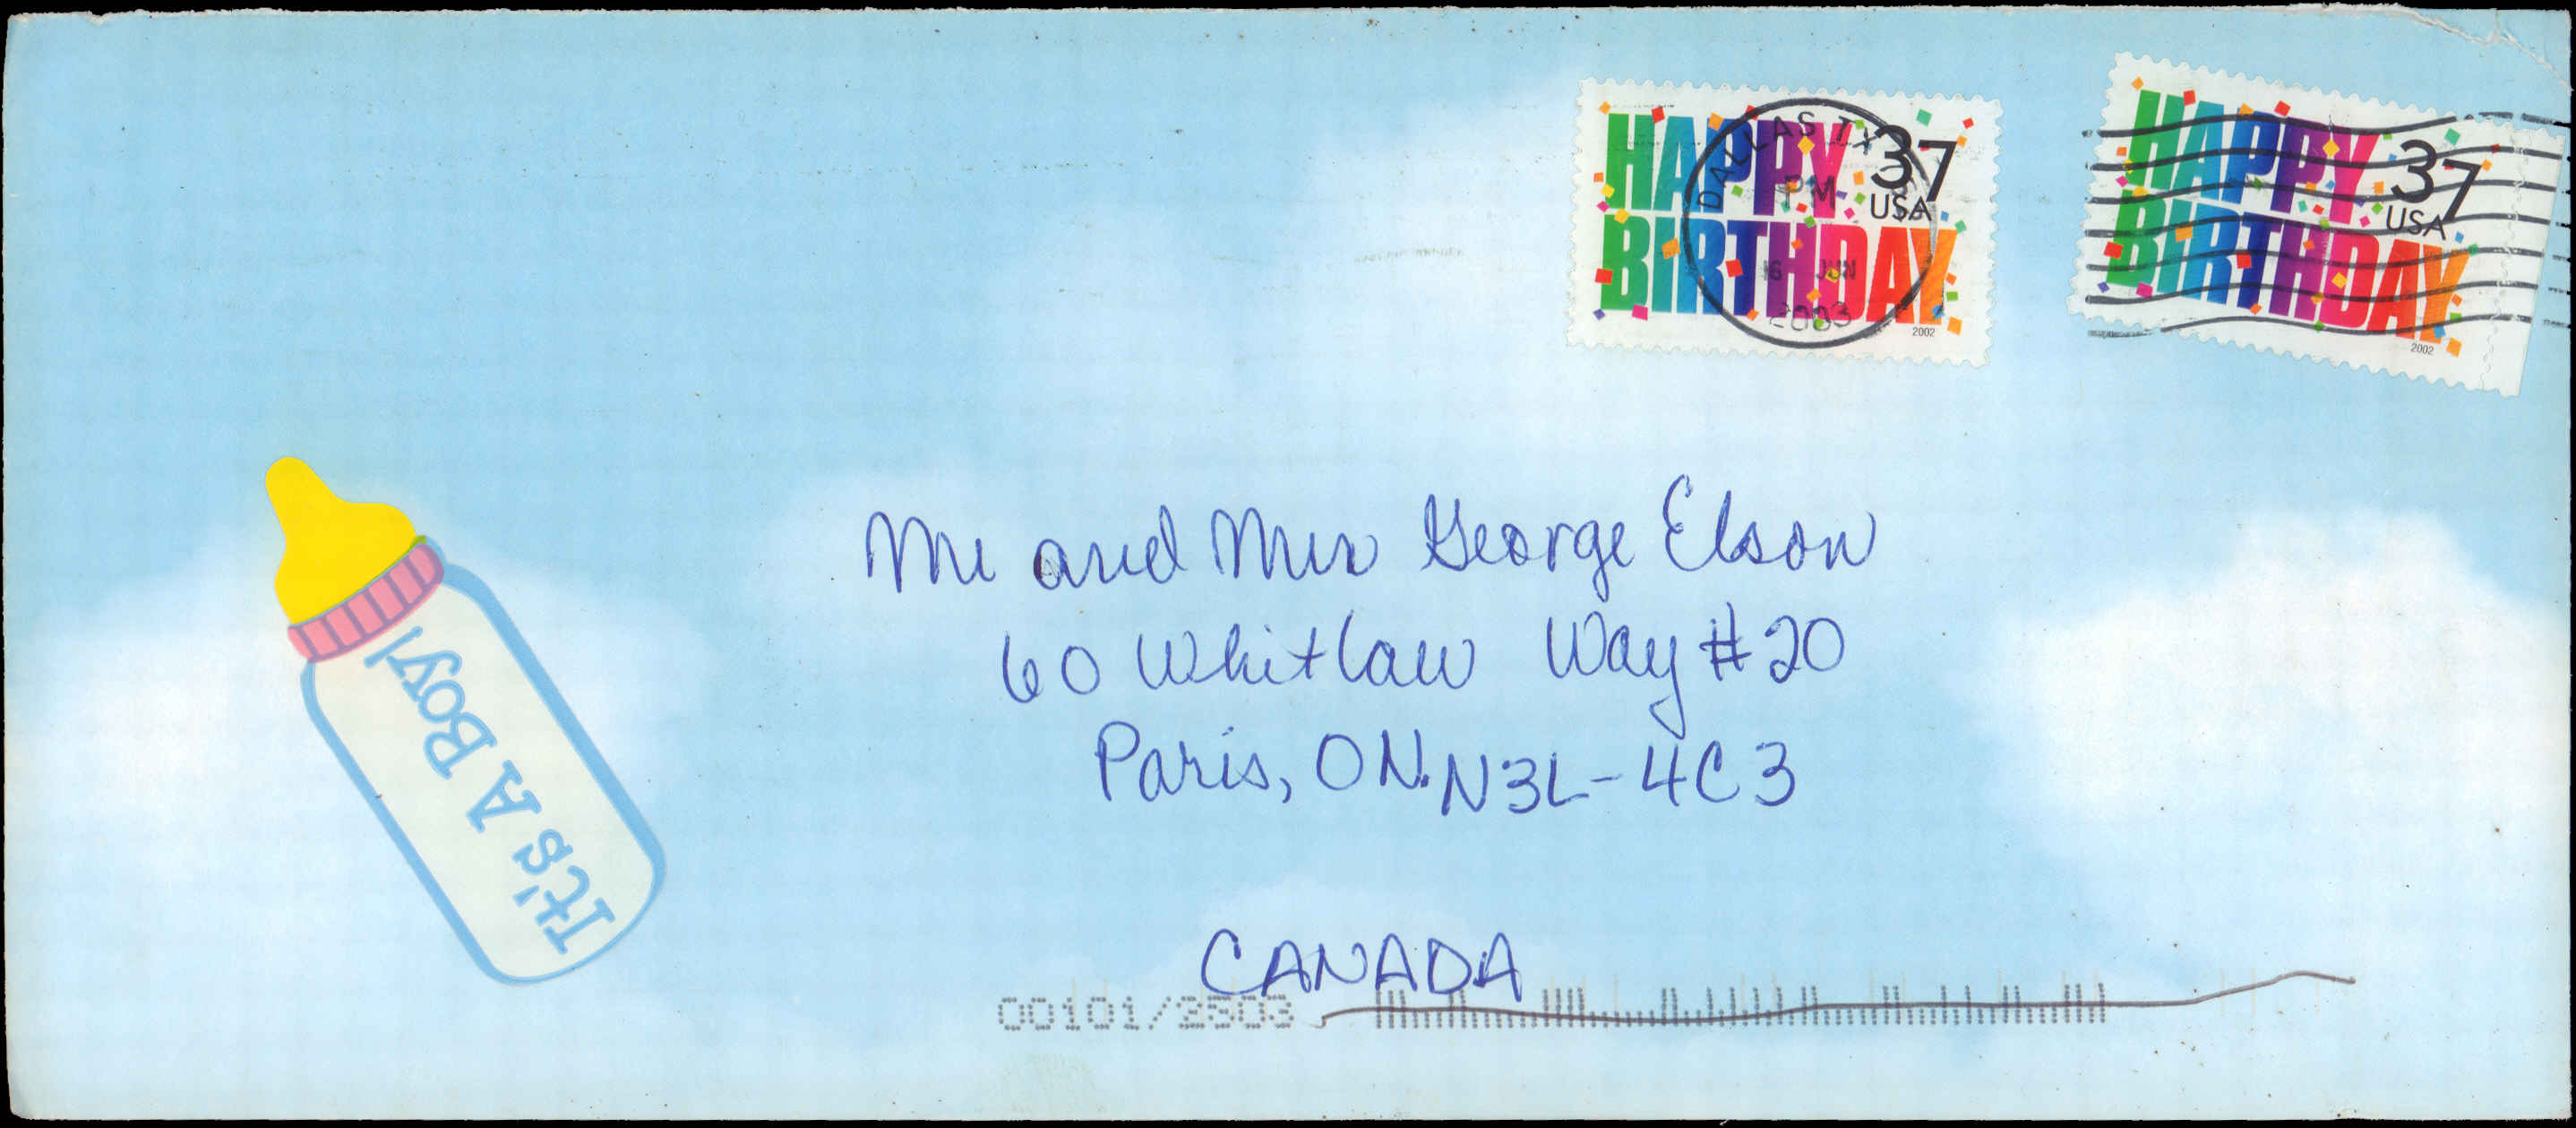 HAPPY BIRTHDAY
37
USA
2002
DALLAS TX
PM
16 JUN
2003
HAPPY BIRTHDAY
37
USA
2002
Mr and Mrs George Elson
60 Whitlaw Way #20
Paris, ON. N3L-4C3
CANADA
It's A Boy!
00101/2503